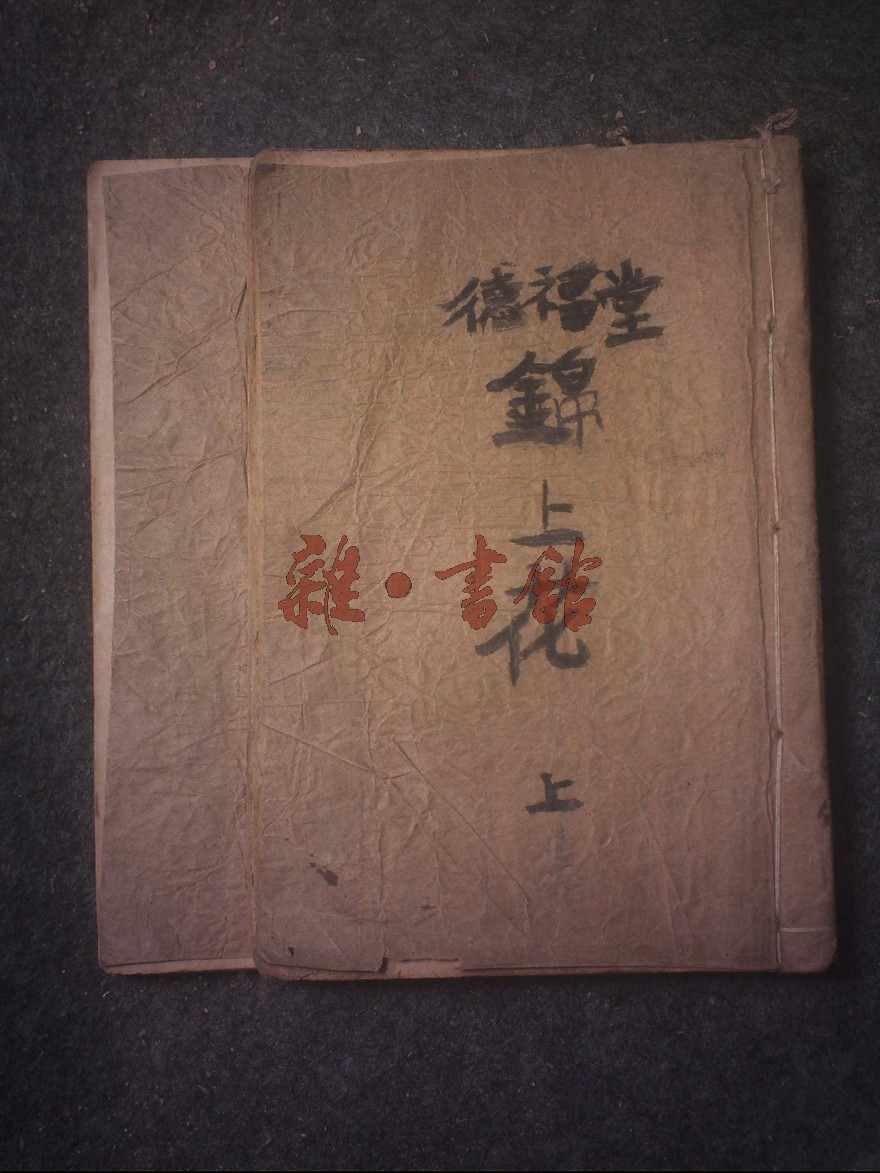 德福堂
錦
上
花
上
雜·書館